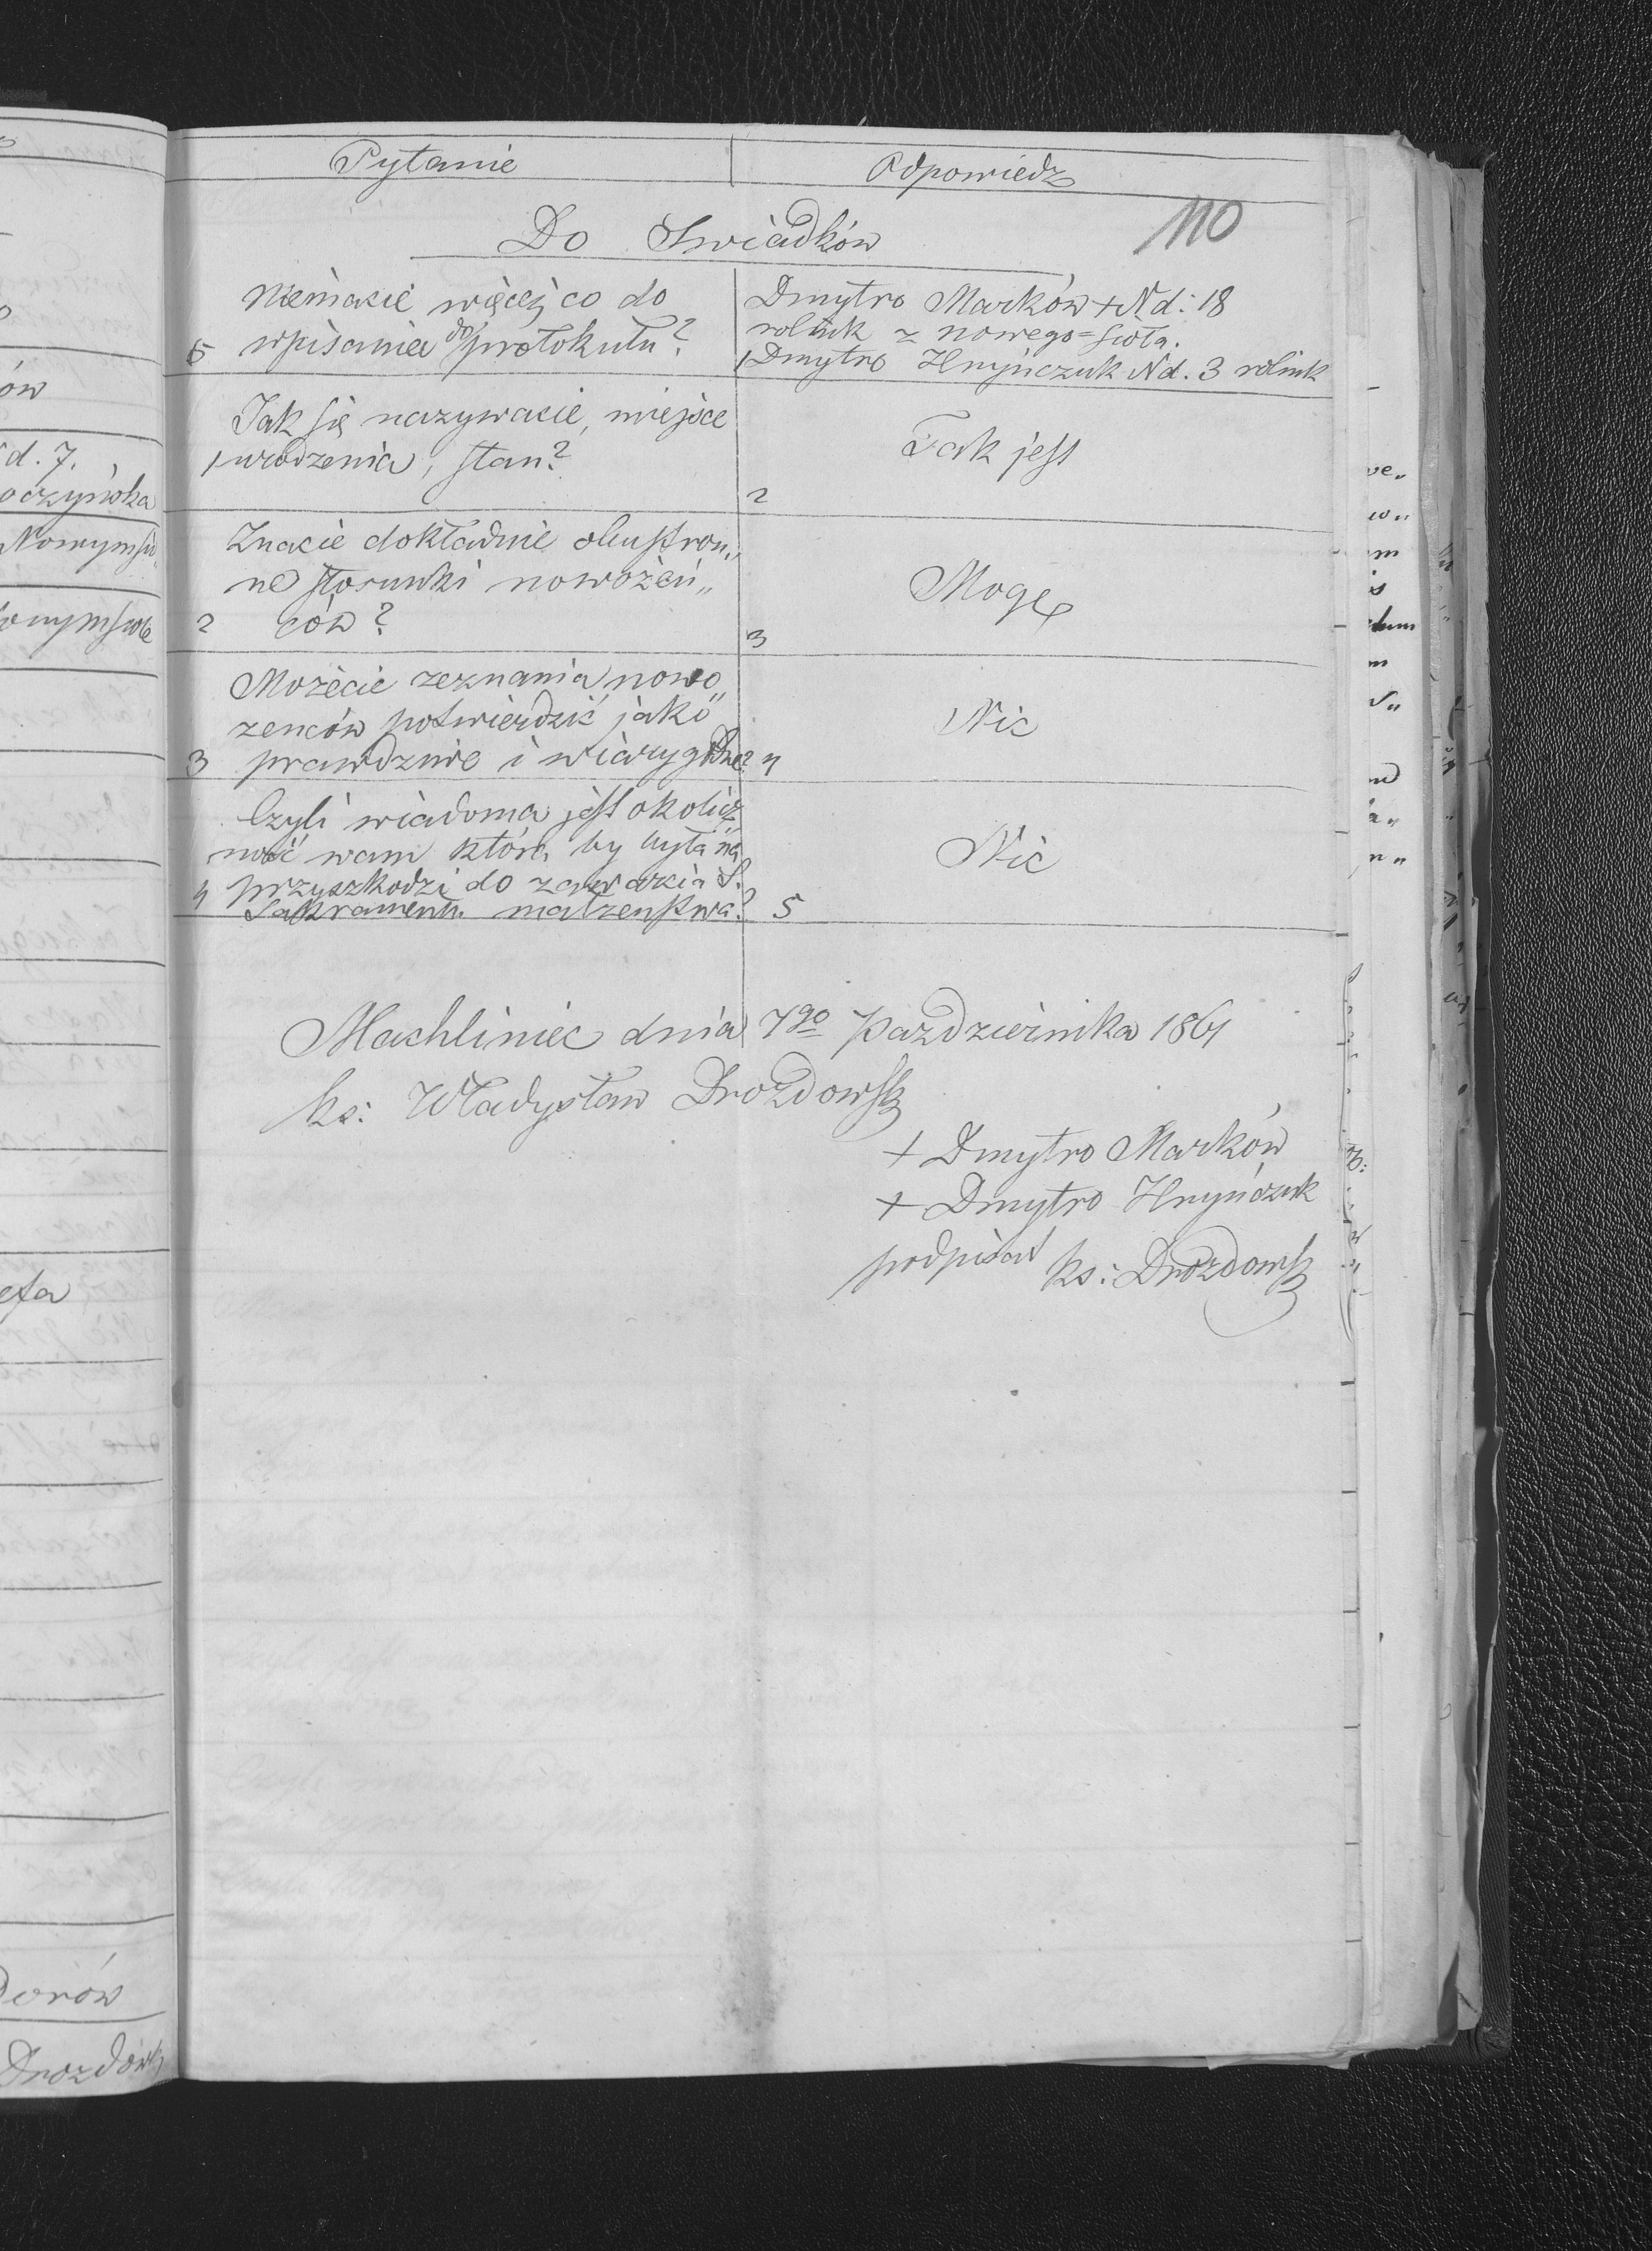 Pytanie
Odpowiedz
110
Do Swiadków
Niemacie więcej co do
5 wpisania do protokułu?
Dmytro Marków + Nd: 18
rolnik z nowego=sioła.
1 Dmytro Hryńczuk Nd. 3 rolnik
Jak się nazywacie, miejsce
1 urodzenia, stan?
Tak jest
2
Znacie dokładnie obustron„
ne stosunki nowożeń„
2 ców?
Mogę
3
Możecie zeznania nowo„
żenców potwierdzić jako
3 prawdziwe i wiarygodne?
Nic
4
Czyli wiadoma jest okolicz„
ność wam która by była na
4 przyszkodzi do zawarcia S.
Sakramentu małżeństwa?
Nic
5
Machliniec dnia 7go Pazdziernika 1861
ks: Władysław Drozdowski
+ Dmytro Marków
+ Dmytro Hryńczuk
podpisał ks: Drozdowski
ów
d. 7.
efa
Drozdowski